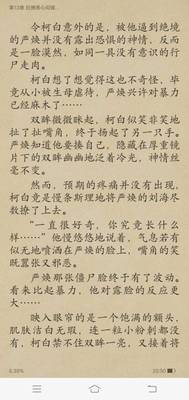 第13章 扭捏羞心闷骚
令柯白意外的是，被他逼到绝境
的严焕并没有露出恐惧的神情，反而
是一脸漠然，如同一具没有意识的行
尸走肉。
柯白想了想觉得这也不奇怪，毕
竟从小被生母虐待，严焕兴许对暴力
已经麻木了……
双眸微微眯起，柯白似笑非笑地
扯了扯嘴角，终于扬起了另一只手。
严焕知道他要揍自己，隐藏在厚重镜
片下的双眸幽幽地泛着冷光，神情丝
毫不变。
然而，预期的疼痛并没有出现，
柯白竟是慢条斯理地将严焕的刘海尽
数撩了上去。
“一直很好奇，你究竟长什么
样……”他慢悠悠地说着，气息若有
似无地喷洒在严焕的脸上，嘴角的笑
既嚣张又邪恶。
严焕那张僵尸脸终于有了波动。
看来比起暴力，他对露脸的反应更
大……
映入眼帘的是一个饱满的额头，
肌肤洁白无瑕，连一粒小粉刺都没
有，柯白禁不住双眸一亮，又接着将
6.39%
20:50